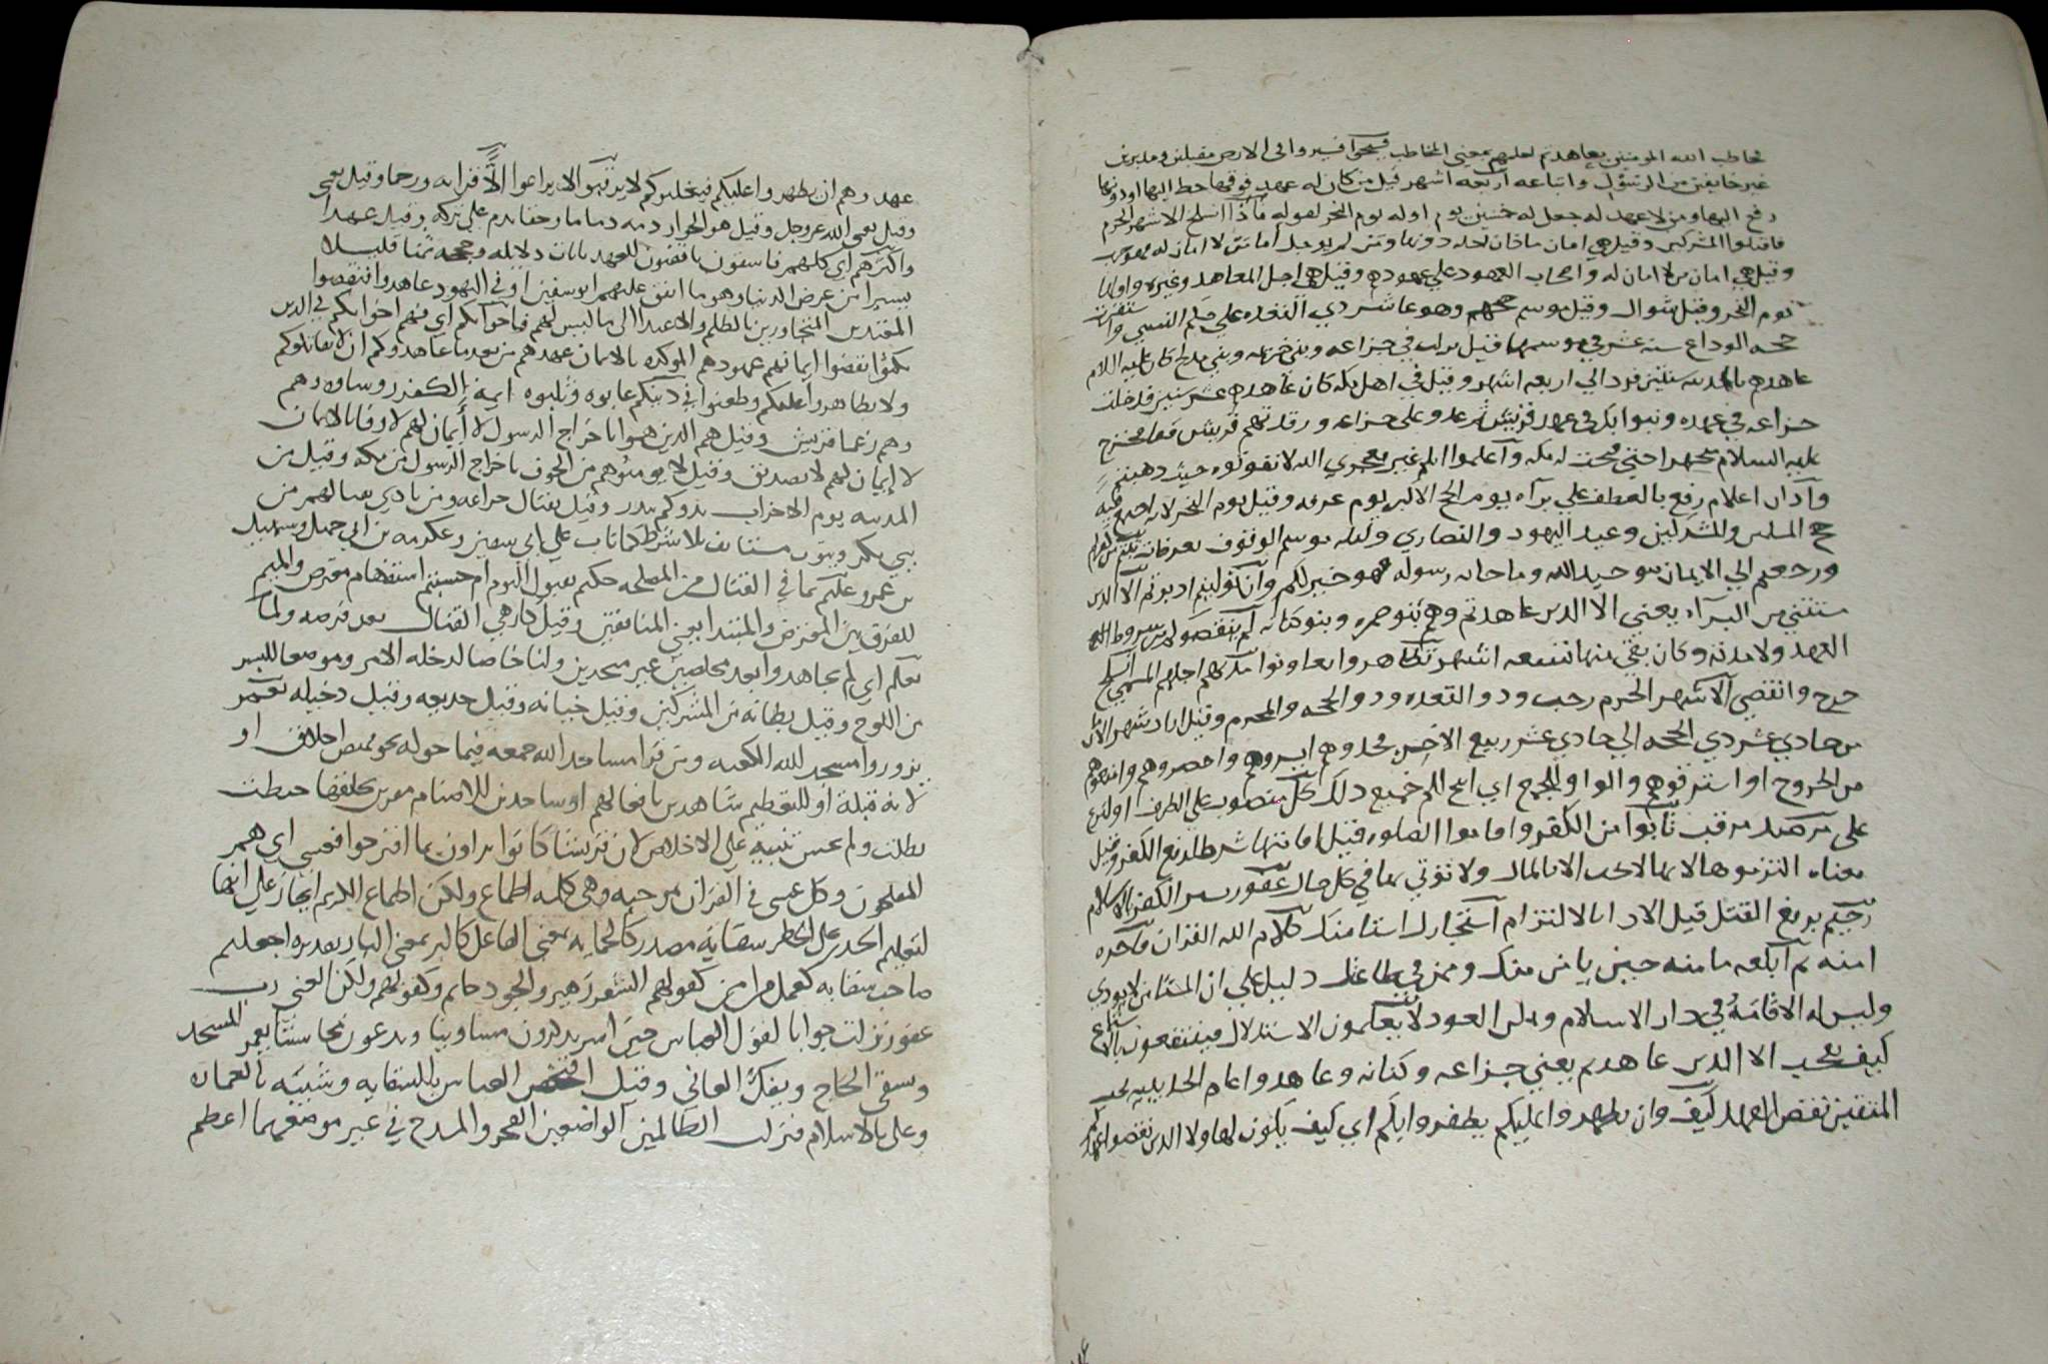 خاطب الله المومنين بعاهدتم لعلهم بمعنى المخاطب فسيحوا سيروا في الارض مقبلين ومدبرين
غير خايفين من الرسول واتباعه اربعه اشهر قيل من كان له عهد فوقها حط اليها او دونها
رفع اليها ومن لا عهد له جعل له خمسين يوم اوله يوم النحر لقوله فاذا انسلخ الاشهر الحرم
فاقتلوا المشركين وقيل هي امان ما كان لحله دونها ومن لم يوجل اما من لا امان له
وقيل هي امان من لا امان له واصحاب العهود على عهودهم وقيل هي اجل المعاهد وغيره واولها
يوم النحر وقيل شوال وقيل موسم حجهم وهو عاشر ذي القعده على حكم النسي واستقرت
حجه الوداع سنه عشر في موسمها قيل نزلت في خزاعه وبني خزيمه وبني مدلج كان عليه السلام
عاهدهم بالمدينه سنتين فرد الي اربعه اشهر وقيل في اهل مكه كان عاهدهم عشر سنين فدخلت
خزاعه في عهده وبنوا بكر في عهد قريش ثم عدوا على خزاعه ورفدتهم قريش فخرج
عليه السلام حتى فتحت له مكه واعلموا انكم غير معجزي الله لا تفوتوه حيث ذهبتم
واذان اعلام رفع بالعطف على براه يوم الحج الاكبر يوم عرفه وقيل يوم النحر لانه
حج المسلمين والمشركين وعيد اليهود والنصاري وليله موسم الوقوف بعرفات
ورجعتم الي الايمان بتوحيد الله وما جا به رسوله فهو خير لكم وان توليتم ادبرتم الا الذين
مستثني من البراه يعني الا الذين عاهدتم وهم بنو ضمره وبنو كنانه لم ينقصوكم من شروط
العهد ولا مدته وكان بقي منها تسعه اشهر تظاهروا يعاونوا مدتهم اجلهم المسمي انسلخ
خرج وانقضي الاشهر الحرم رجب وذو القعده وذو الحجه والمحرم وقيل اراد شهر الامان
من حادي عشر ذي الحجه الي حادي عشر ربيع الاخر وخذوهم ايسروهم واحصروهم وامنعوهم
من الخروج او استرقوهم والواو للجمع اي ابيح لكم جميع ذلك كل منصوب على الظرف
على مرصد مرقب تابوا من الكفر واقاموا الصلوه قيل اقامتها شرط لدفع الكفر وقيل
معناه التزموها لانها لا تجب الا بالمال ولا توتي بها في كل حال غفور يستر الكفر بالاسلام
رحيم برفع القتل قبل الادا بالالتزام استجارك استامنك كلام الله القران فاجره
امنه ثم ابلغه مامنه حين يامن منك وممن في طاعتك دليل على ان المستامن لا يوذي
وليس له الاقامه في دار الاسلام ويمكن العود لا يعلمون الاستدلال فينتفعون
كيف تعجب الا الذين عاهدتم يعني خزاعه وكنانه وعاهدوا عام الحديبيه يحب
المتقين نقض العهد كيف وان يظهروا عليكم يظفروا بكم اي كيف يكون لهاولا الذين نقضوا
عهد وهم ان يظهروا عليكم فيغلبوكم لا يرقبوا لا يراعوا الا قرابه ورحما وقيل يعني
وقيل يعني الله عز وجل وقيل هو الجوار ذمه ذماما وحقا يذم على تركه وقيل عهدا
واكثرهم اي كلهم فاسقون ناقضون للعهد بايات دلايله وحججه ثمنا قليلا
يسيرا من عرض الدنيا وهو ما انفق عليهم ابو سفين او في اليهود عاهدوا فنقضوا
المعتدين المتجاوزين بالظلم والاعتدا الي ما ليس لهم فاخوانكم اي فهم اخوانكم في الدين
نكثوا نقضوا ايمانهم عهودهم الموكده بالايمان عهدهم من بعد ما عاهدوكم ان لا يقاتلوكم
ولا يظاهروا عليكم وطعنوا في دينكم عابوه وثلبوه ايمه الكفر روساوه وهم
وهم زعما قريش وقيل هم الذين هموا باخراج الرسول لا ايمان لهم لا وفا بالايمان
لا ايمان لهم لا تصديق وقيل لا يومنوهم من الخوف باخراج الرسول من مكه وقيل من
المدينه يوم الاحزاب بدوكم ببدر وقيل بقتال خزاعه ومن بادي هنا لهم من
بني بكر ويتوب مستانف بلا شرط كما تاب على ابي سفين وعكرمه بن ابي جهل وسهيل
بن عمرو عليكم بما في القتال من المصلحه حكيم بقبول التوبه ام حسبتم استفهام معترض والميم
للفرق بين المعترض والمبتدا يعني المنافقين وقيل كارهي القتال بعد فرضه ولما
يعلم اي لم يجاهدوا بعد مخلصين غير متخذين ولنا خاصا لدخله الامر وموضعا للسر
من الولوج وقيل بطانه من المشركين وقيل خيانه وقيل خديعه وقيل دخيله يعمر
يزوروا مسجد لله الكعبه ومن قرا مساجد الله جمعه فيما حوله او
لانه قبلة او للتعظيم شاهدين بافعالهم او ساجدين للاصنام مقرين بكلفها حبطت
بطلت ولم يخش تنبيه على الاخلاص لان قريشا كانوا يراون بما افترحوا فعسي اي هم
المفلحون وكل عسى في القران موجبه وهي كلمه اطماع ولكن اطماع الكريم انجاز على انها
لتعليم الحذر على الخطر سقاية مصدر كالحمايه بمعنى الفاعل كالبر بمعني البار تقديره اجعلتم
صاحب سقايه كعمل من امن كقولهم الشعر زهير والجود حاتم وكقولهم ولكن الغني رب
غفور نزلت جوابا لقول العباس حين اسر يذكرون مساوينا ويدعون محاسننا يعمر المسجد
ونسقي الحاج ونفك العاني وقيل افتخر العباس بالسقايه وشيبه بالعماره
وعلى بالاسلام فنزلت الظالمين الواضعين الفخر والمدح في غير موضعهما اعظم